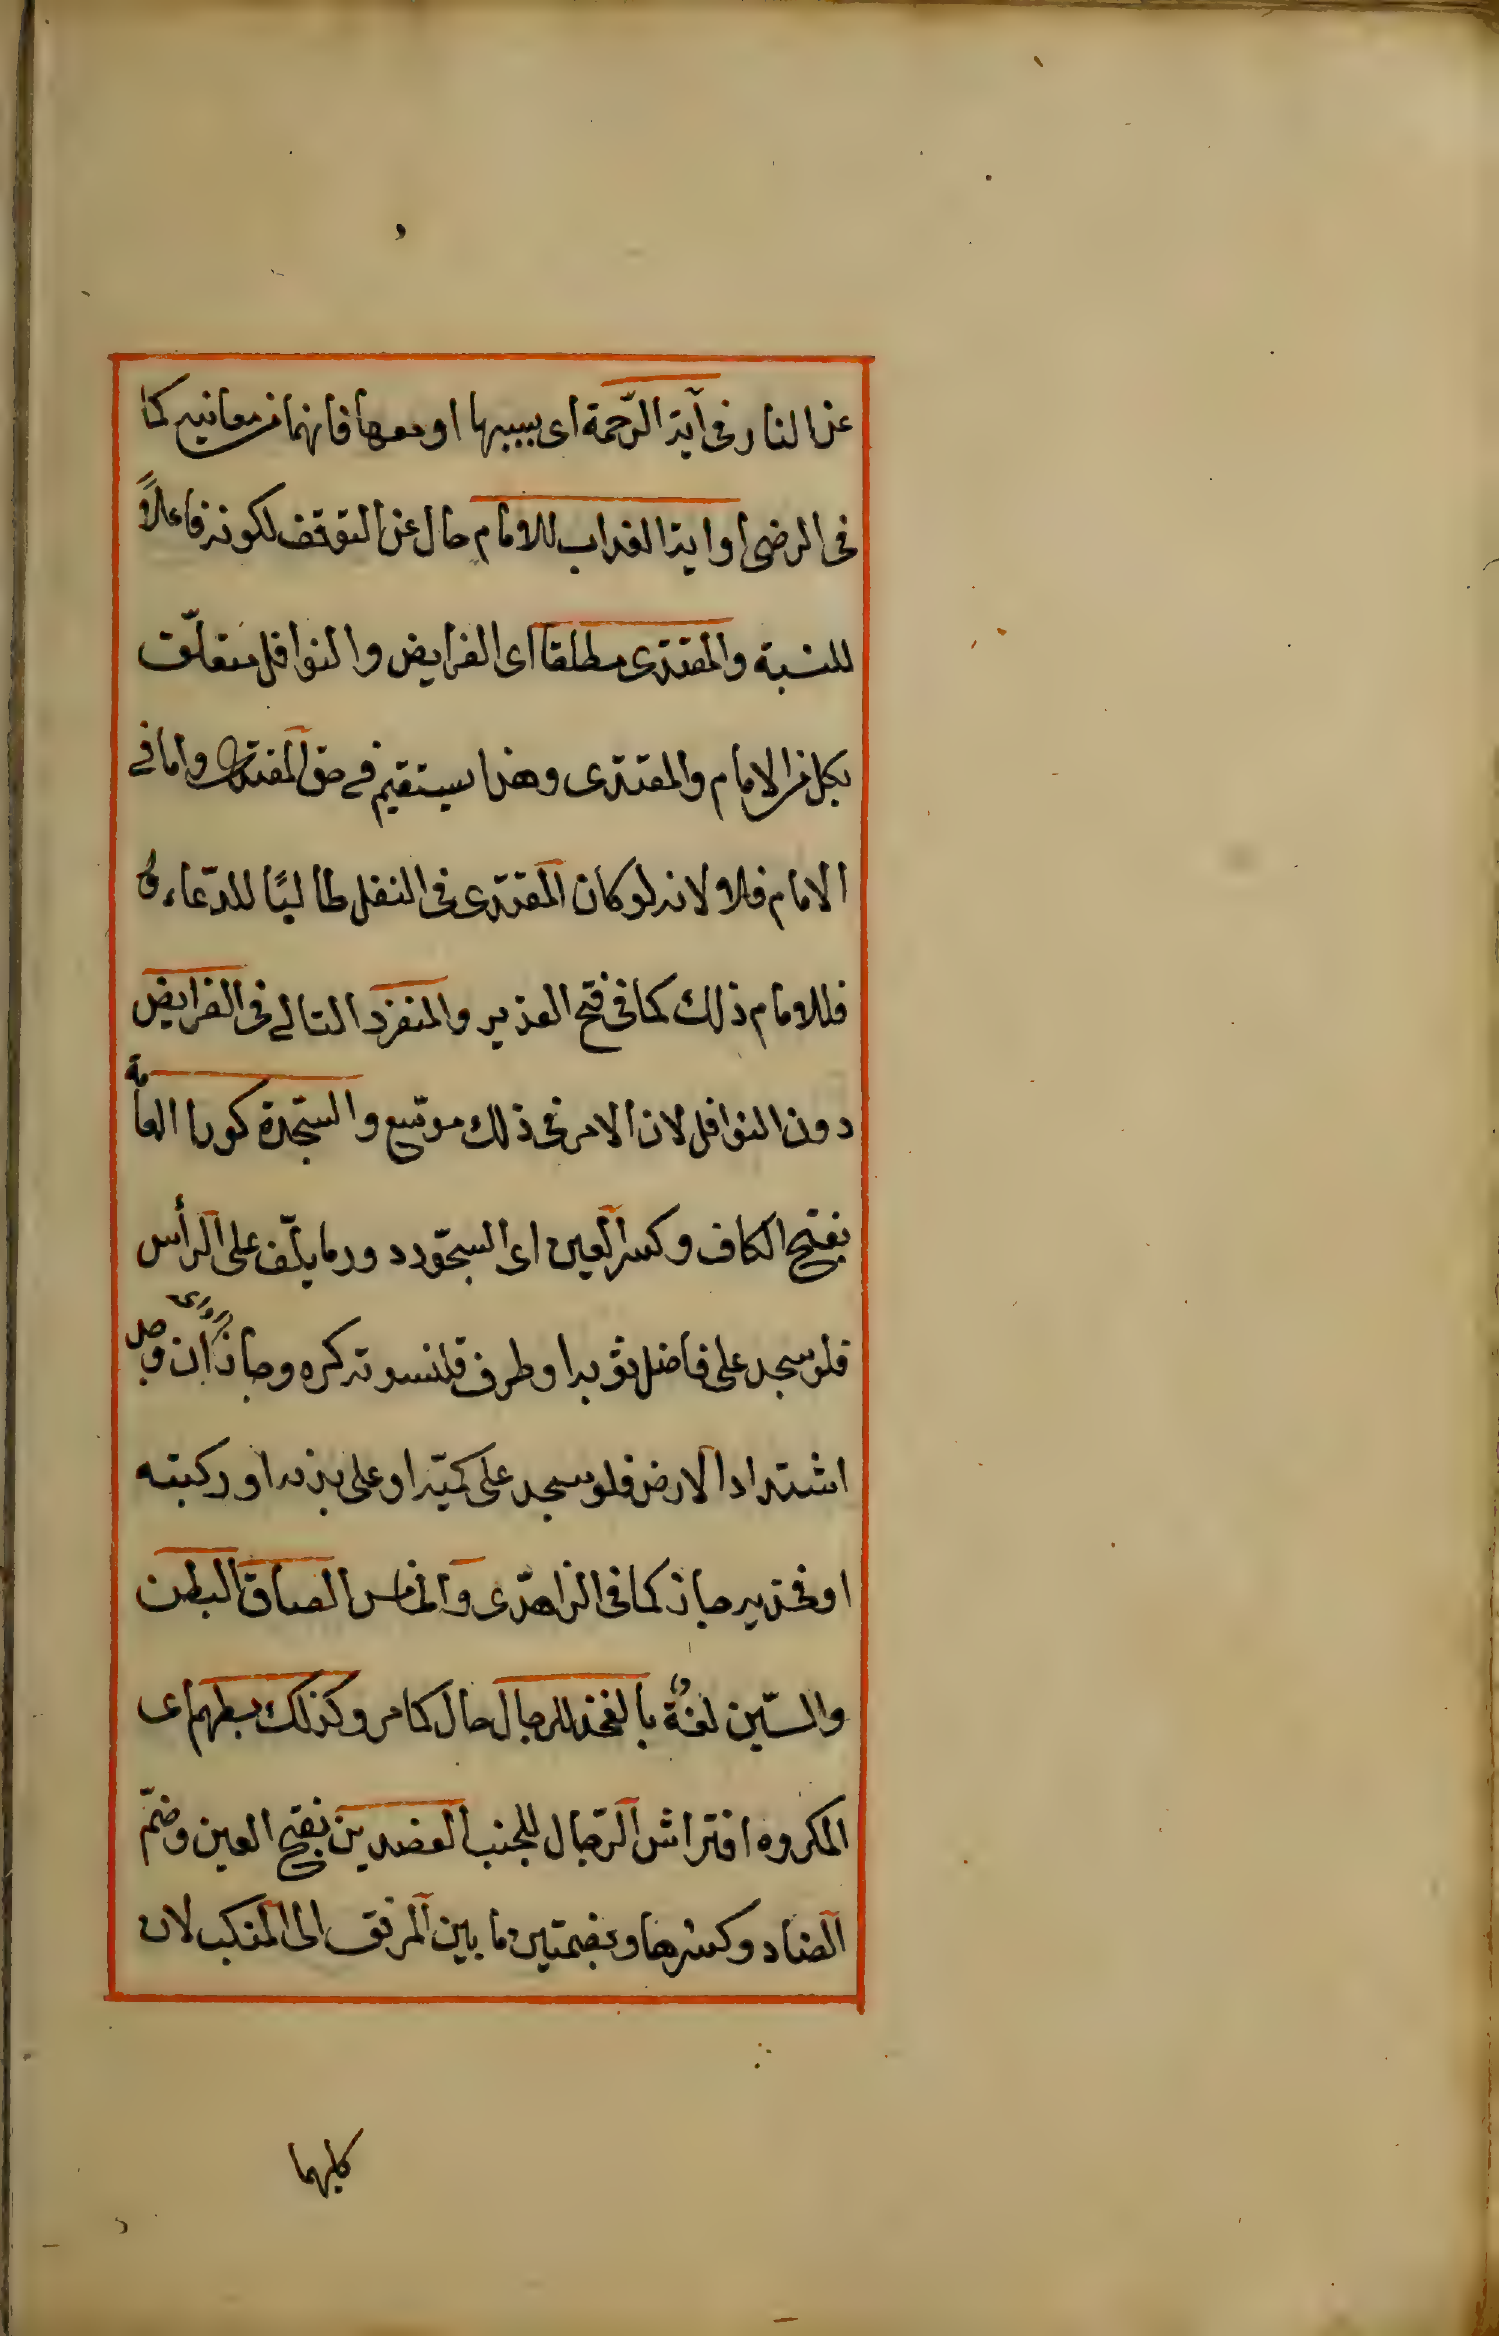 عن النار فى آية الرّحمة اى بسببها او معها فانهما من معانيه كما
فى الرضى او اية العذاب للامام حال عن التوقف لكونه فاعلاً
للنسبة والمقتدى مطلقا اى الفرايض والنوافل متعلّق
بكل من الامام والمقتدى وهذا يستقيم فى حق المقتدى واما فى
الامام فلا لانه لو كان المقتدى فى النفل طالبًا للدّعاء
فللامام ذلك كما فى فتح القدير والمنفرد التالى فى الفرايض
دون النوافل لان الامر فى ذلك موسّع والسّجدة كور العامة
بفتح الكاف وكسر العين اى السجود دور ما يلّف على الرأس
فلو سجد على فاضل ثوبه او طرف قلنسوته كره وجاز ان وجد
اشتداد الارض فلو سجد على كمّه او على يديه او ركبته
او فخذيه جاز كما فى الزاهدّى والخامس الصاق البطن
والسّين لغةٌ بالفخذ للرجال حال كما مر وكذلك بطهم اى
المكروه افتراش الرّجال للجنب العضدين بفتح العين وضمّ
الضاد وكسرها وبضمتين ما بين المرفق الى المنكب لان
كليهما